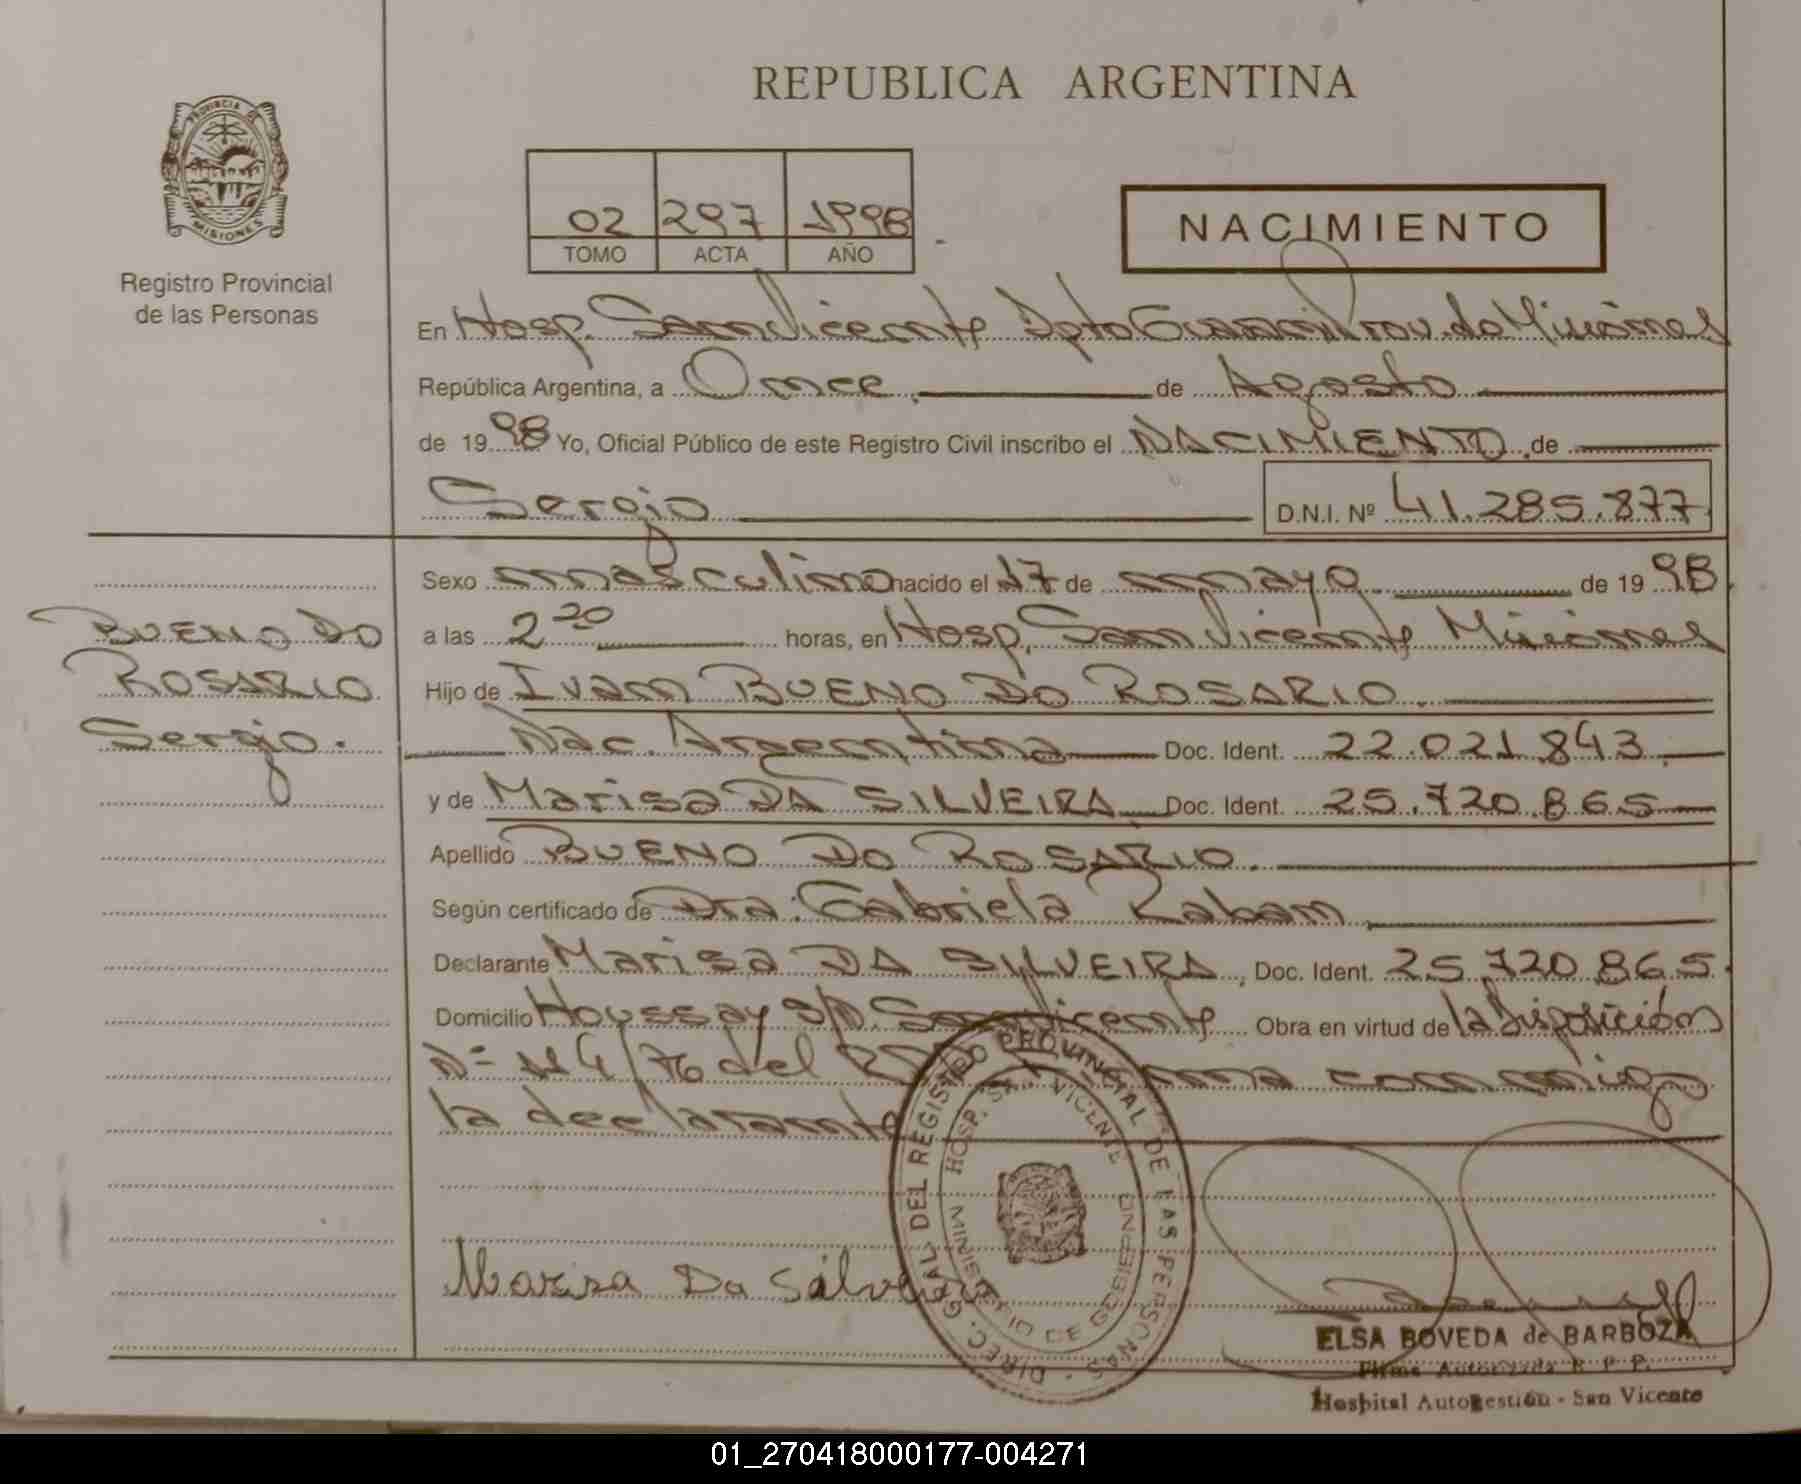 REPUBLICA ARGENTINA
PROVINCIA DE
MISIONES
Registro Provincial
de las Personas
02 297 1998
TOMO ACTA AÑO
NACIMIENTO
En Hosp. San Vicente Dpto Guaraní Prov. de Misiones
República Argentina, a Once de Agosto
de 1998 Yo, Oficial Público de este Registro Civil inscribo el NACIMIENTO de
Sergio D.N.I. Nº 41.285.877
Sexo masculino nacido el 17 de mayo de 1998.
BUENO DO
ROSARIO
Sergio.
a las 2 20 horas, en Hosp. San Vicente Misiones
Hijo de Ivan BUENO DO ROSARIO.
Nac. Argentina Doc. Ident. 22.021.843
y de Marisa DA SILVEIRA Doc. Ident. 25.720.865
Apellido BUENO DO ROSARIO.
Según certificado de Dra. Gabriela Raban
Declarante Marisa DA SYLVEIRA, Doc. Ident. 25.720.865.
Domicilio Houssay S/N. San Vicente Obra en virtud de la Disposición
Nº 114/76 del firma conmigo
la declarante
Marisa Da Silveira
DIREC. GRAL. DEL REGISTRO PROVINCIAL DE LAS PERSONAS
HOSP. SAN VICENTE
MINISTERIO DE GOBIERNO
ELSA BOVEDA de BARBOZA
Firma Autorizada R. P. P.
Hospital Autogestión - San Vicente
01_270418000177-004271